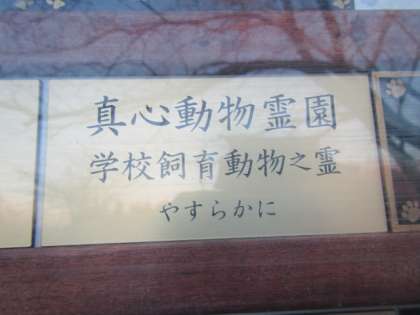 真心動物霊園
学校飼育動物之霊
やすらかに